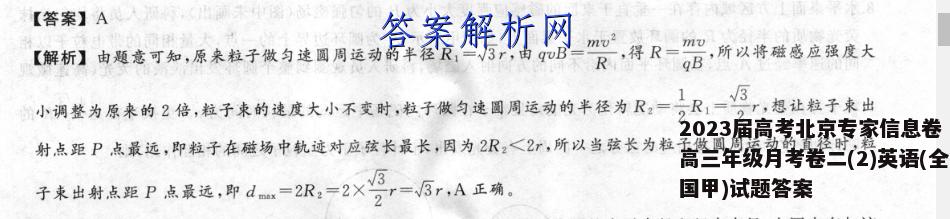 【答案】A
答案解析网
【解析】由题意可知,原来粒子做匀速圆周运动的半径 R₁=√3r,由 qvB=mv²/R,得 R=mv/qB,所以将磁感应强度大
小调整为原来的 2 倍,粒子束的速度大小不变时,粒子做匀速圆周运动的半径为 R₂=1/2R₁=√3/2r,想让粒子束出
射点距 P 点最远,即粒子在磁场中轨迹对应弦长最长,因为 2R₂<2r,所以当弦长为粒子做圆周运动的直径时,粒
子束出射点距 P 点最远,即 dmax=2R₂=2×√3/2r=√3r,A 正确。
2023届高考北京专家信息卷
高三年级月考卷二(2)英语(全
国甲)试题答案